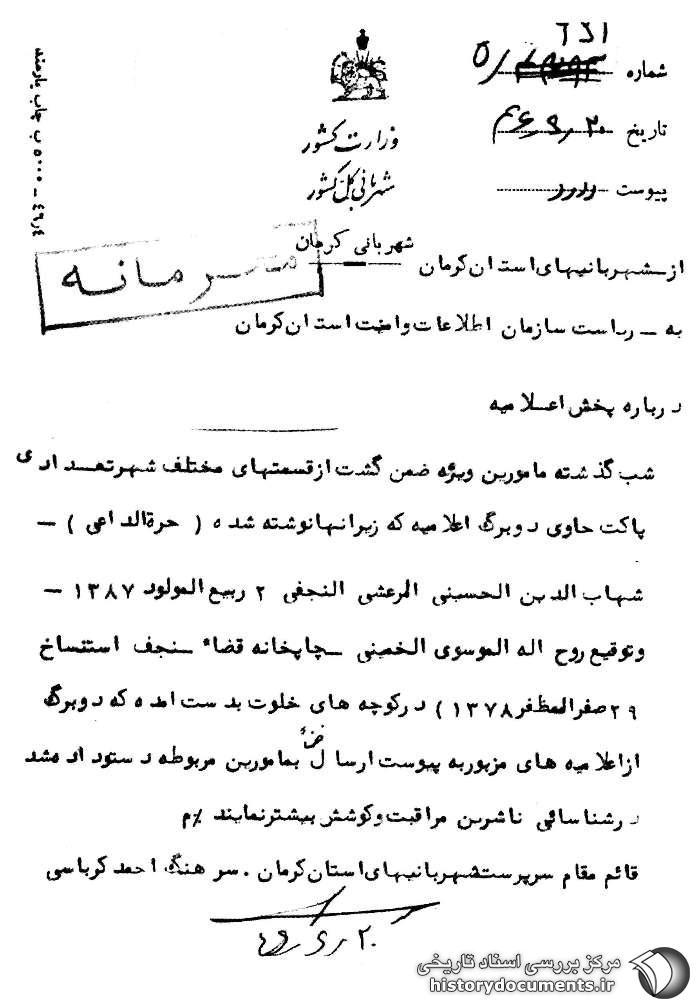 ٦٥١
شماره ٥/
تاریخ ٤٦٫٩٫٢٠
پیوست دارد
وزارت کشور
شهربانی کل کشور
شهربانی کرمان
محرمانه
٤٦٫٤ – ٥٠٠٠ ب چاپ یارمند
از – شهربانیهای استان کرمان
به – ریاست سازمان اطلاعات و امنیت استان کرمان
درباره پخش اعلامیه
شب گذشته مامورین ویژه ضمن گشت از قسمتهای مختلف شهر تعدادی
پاکت حاوی دو برگ اعلامیه که زیر انها نوشته شده ( حرةالداعی ) –
شهاب الدین الحسینی المرعشی النجفی ٢ ربیع المولود ١٣٨٧ –
وتوقیع روح اله الموسوی الخمینی – چاپخانه قضاء – نجف استنساخ
٢٩ صفرالمظفر ١٣٧٨ ) در کوچه های خلوت بدست امده که دو برگ
از اعلامیه های مزبور به پیوست ارسال ضمنا بمامورین مربوطه دستور داده شد
در شناسائی ناشرین مراقبت و کوشش بیشتر نمایند /م
قائم مقام سرپرست شهربانیهای استان کرمان . سرهنگ احمد کرباسی
مرکز بررسی اسناد تاریخی
historydocuments.ir